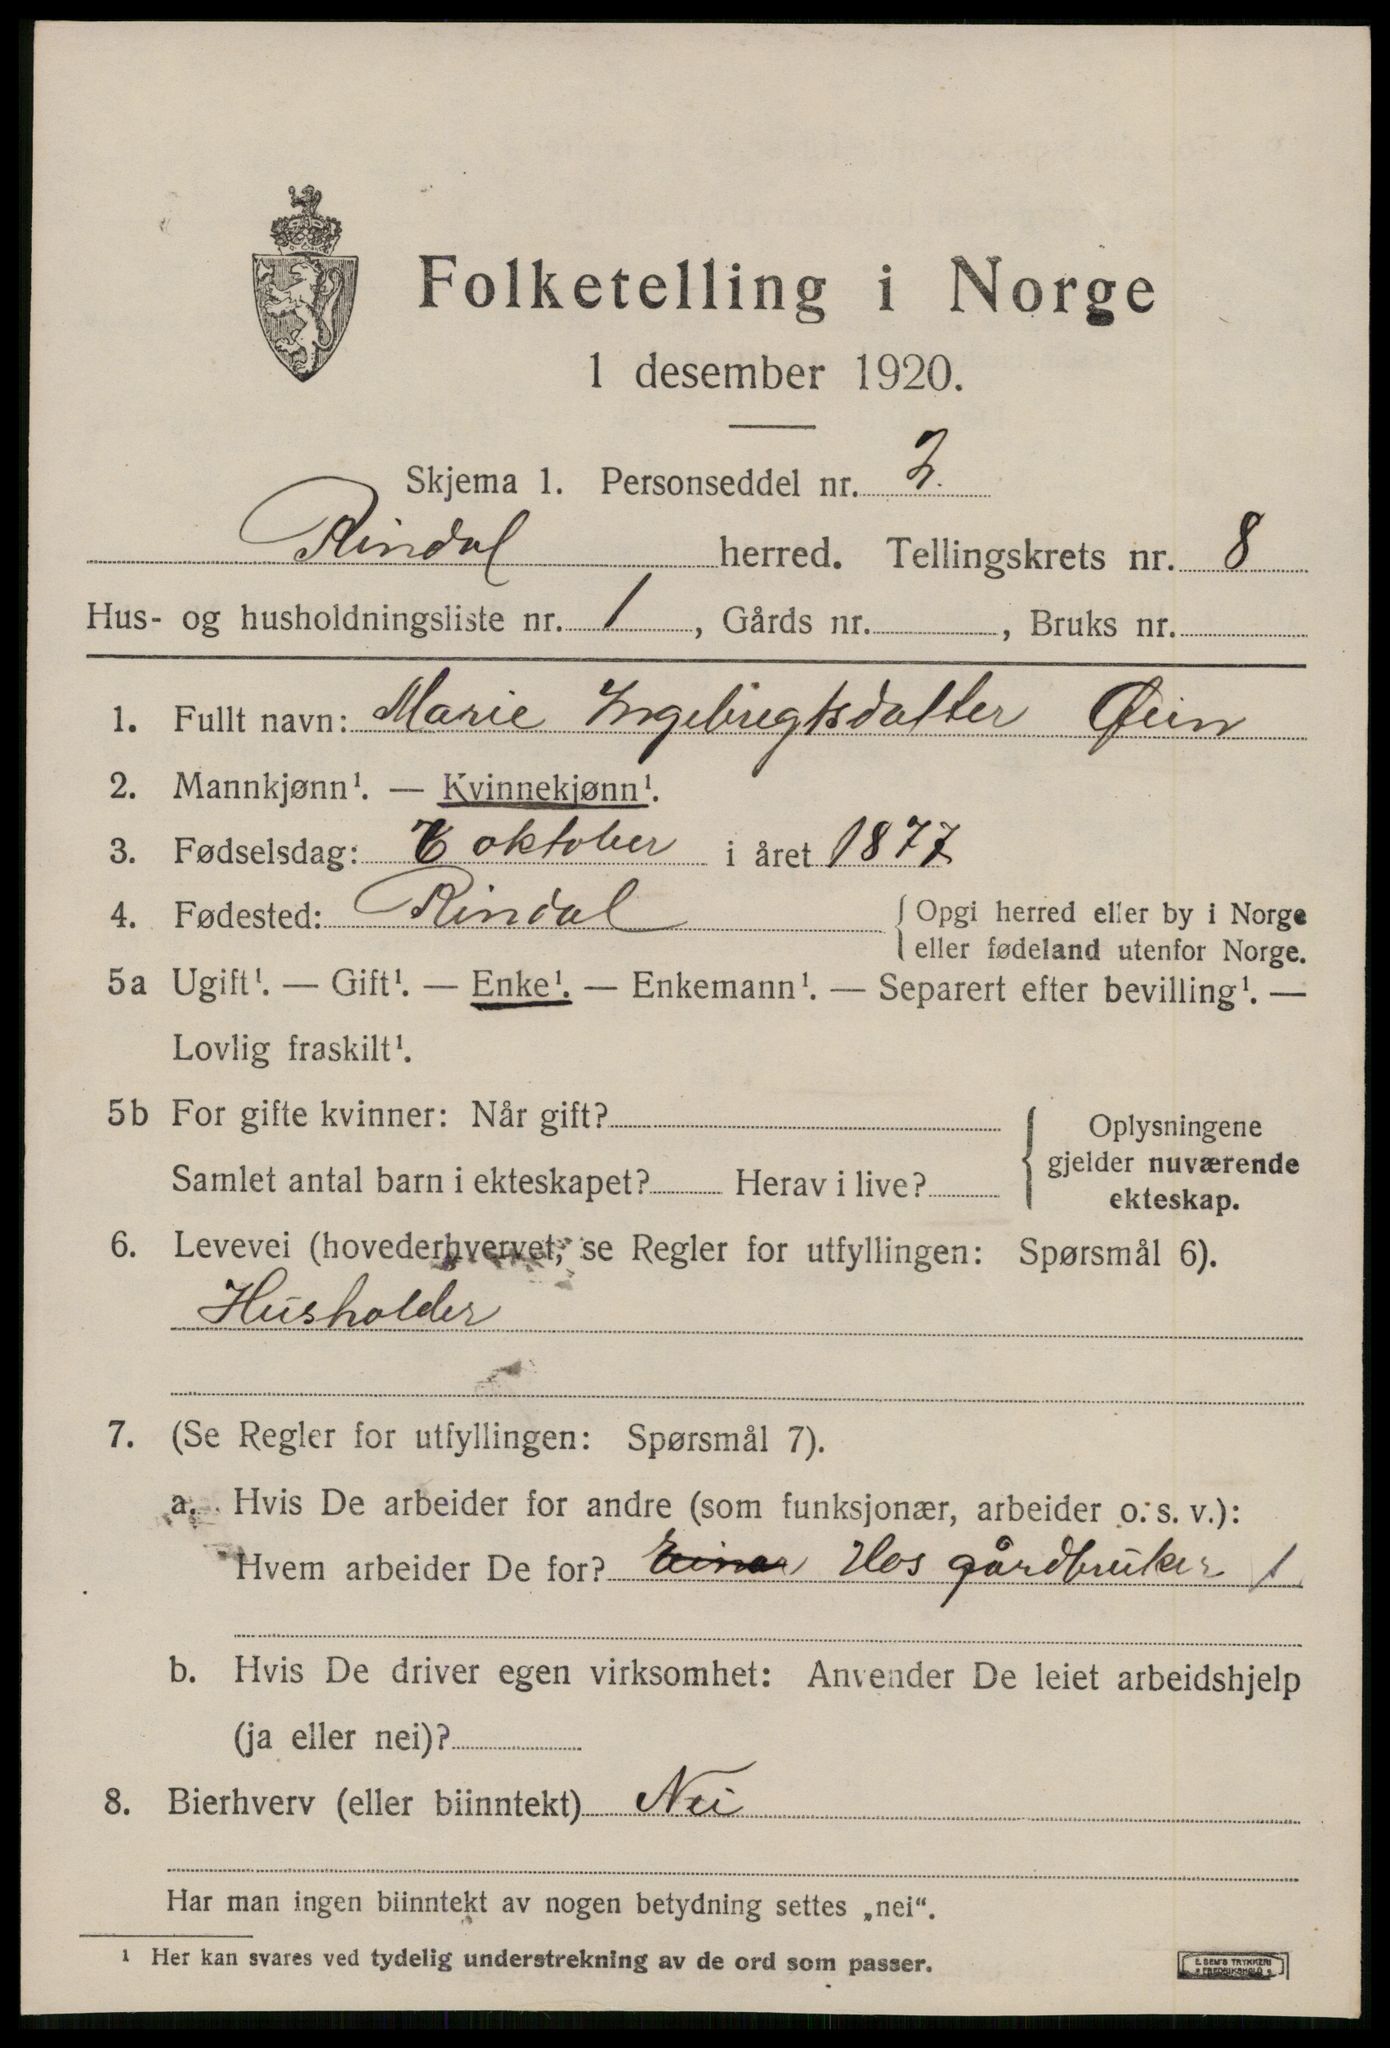 Folketelling i Norge
1 desember 1920.
Skjema 1. Personseddel nr. 2.
Rindal herred. Tellingskrets nr. 8
Hus- og husholdningsliste nr. 1, Gårds nr. , Bruks nr.
1. Fullt navn: Marie Ingebrigtsdatter Øien
2. Mannkjønn¹. — Kvinnekjønn¹.
3. Fødselsdag: 6 oktober i året 1877
4. Fødested: Rindal { Opgi herred eller by i Norge
eller fødeland utenfor Norge.
5a Ugift¹. — Gift¹. — Enke¹. — Enkemann¹. — Separert efter bevilling¹. —
Lovlig fraskilt¹.
5b For gifte kvinner: Når gift? { Oplysningene
gjelder nuværende
Samlet antal barn i ekteskapet? Herav i live?
ekteskap.
6. Levevei (hovederhvervet, se Regler for utfyllingen: Spørsmål 6).
Husholder
7. (Se Regler for utfyllingen: Spørsmål 7).
a. Hvis De arbeider for andre (som funksjonær, arbeider o. s. v.):
Hvem arbeider De for? Hos gårdbruker 1
b. Hvis De driver egen virksomhet: Anvender De leiet arbeidshjelp
(ja eller nei)?
8. Bierhverv (eller biinntekt) Nei
Har man ingen biinntekt av nogen betydning settes „nei“.
¹ Her kan svares ved tydelig understrekning av de ord som passer.
E. SEM'S TRYKKERI
FREDRIKSHALD